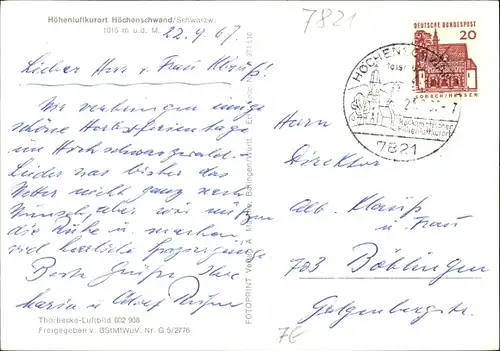 Höhenluftkurort Höchenschwand/Schwarzw.
1015 m ü. d. M.
22.9.67
7821
Lieber Herr u. Frau Klauß!
Wir verbringen einige
schöne Herbstferientage
im Hochschwarzwald.
Leider war bisher das
Wetter nicht ganz nach
Wunsch, aber wir
die Ruhe u. machen
viel herrliche Spaziergänge
Beste Grüsse Ihre
Maria u. Adolf
Thorbecke-Luftbild 602 908
Freigegeben v. BStMfWuV. Nr. G 5/2776
FOTOPRINT
DEUTSCHE BUNDESPOST
20
LORSCH/HESSEN
HÖCHENSCHWAND
1015 m
Heilklimatischer
Höhenluftkurort
7821
Herrn
Direktor
Alb. Klauß
u. Frau
703 Böblingen
Galgenbergstr.